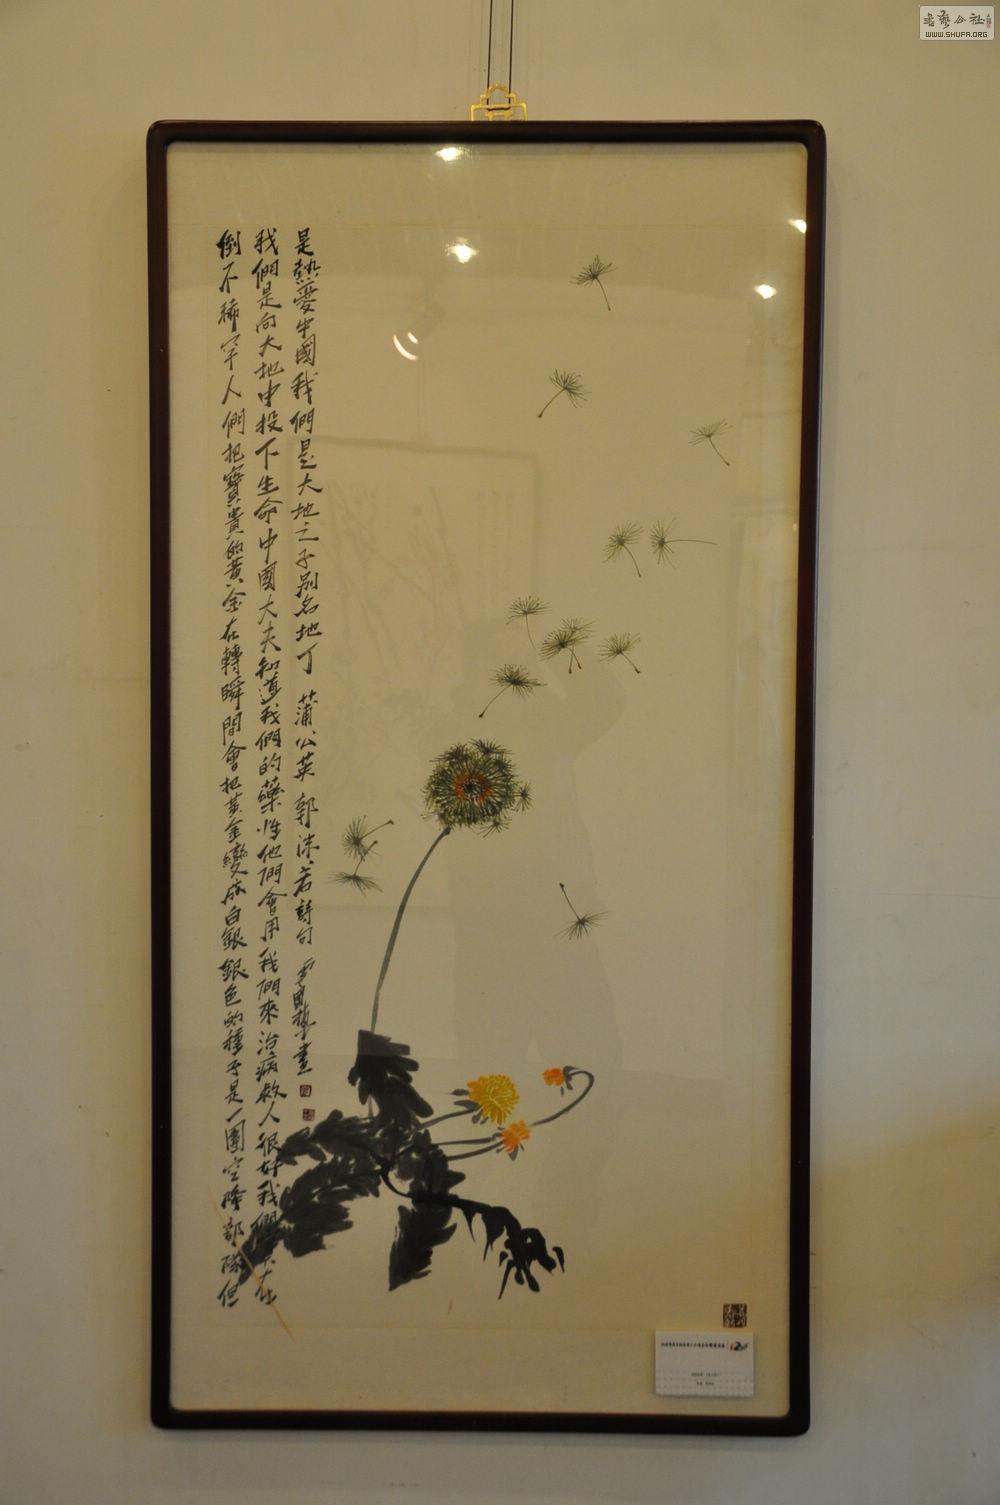 倒不稀罕人們把寶貴的黃金在轉瞬間會把黃金變成白銀銀色的種子是一團空降部隊但
我們是向大地中投下生命中國大夫知道我們的藥性他們會用我們來治病救人很好我們在
是熱愛中國我們是大地之子別名地丁 蒲公英 郭沫若詩句 畫
書藝公社
WWW.SHUFA.ORG